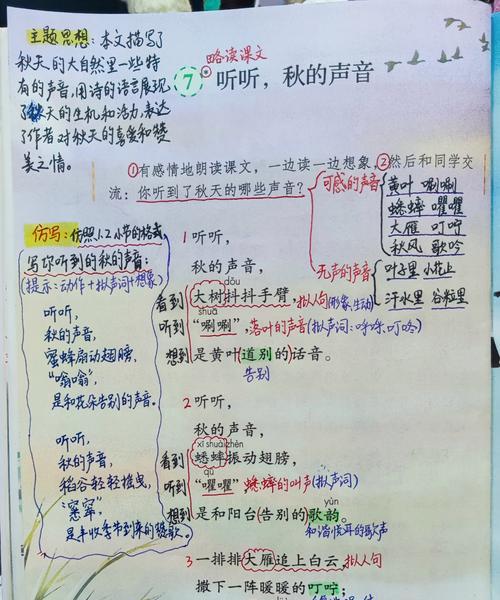 主题思想：本文描写了
秋天的大自然里一些特
有的声音，用诗的语言展现
了秋天的生机和活力，表达
了作者对秋天的喜爱和赞
美之情。
略读课文
7 听听，秋的声音
①有感情地朗读课文，一边读一边想象，②然后和同学交
流：你听到了秋天的哪些声音？
可感的声音
黄叶 唰唰
蟋蟀 㘗㘗
大雁 叮咛
秋风 歌吟
无声的声音
叶子里 小花上
汗水里 谷粒里
仿写：仿照1.2小节的格式，
写你听到的秋的声音：
(提示：动作+拟声词+想象)
听听，
秋的声音，
蜜蜂扇动翅膀，
“嗡嗡”，
是和花朵告别的声音。
听听，
秋的声音，
稻谷轻轻摇曳，
“窸窣”，
是丰收季节到来的赞歌。
1 听听，
秋的声音，
dǒu
看到 大树抖抖手臂，拟人句(形象、生动)
shuā
听到 “唰唰”，落叶的声音(拟声词：呼呼、叮咚)
想到 是黄叶(道别的)话音。
告别
2 听听，
秋的声音，
xī shuài zhèn
看到 蟋蟀振动翅膀，
qú
听到 “㘗㘗”，蟋蟀的叫声(拟声词)
yùn
想到 是和阳台(告别的)歌韵。
和谐悦耳的歌声
3 一排排大雁追上白云，拟人句
撒下一阵暖暖的叮咛；